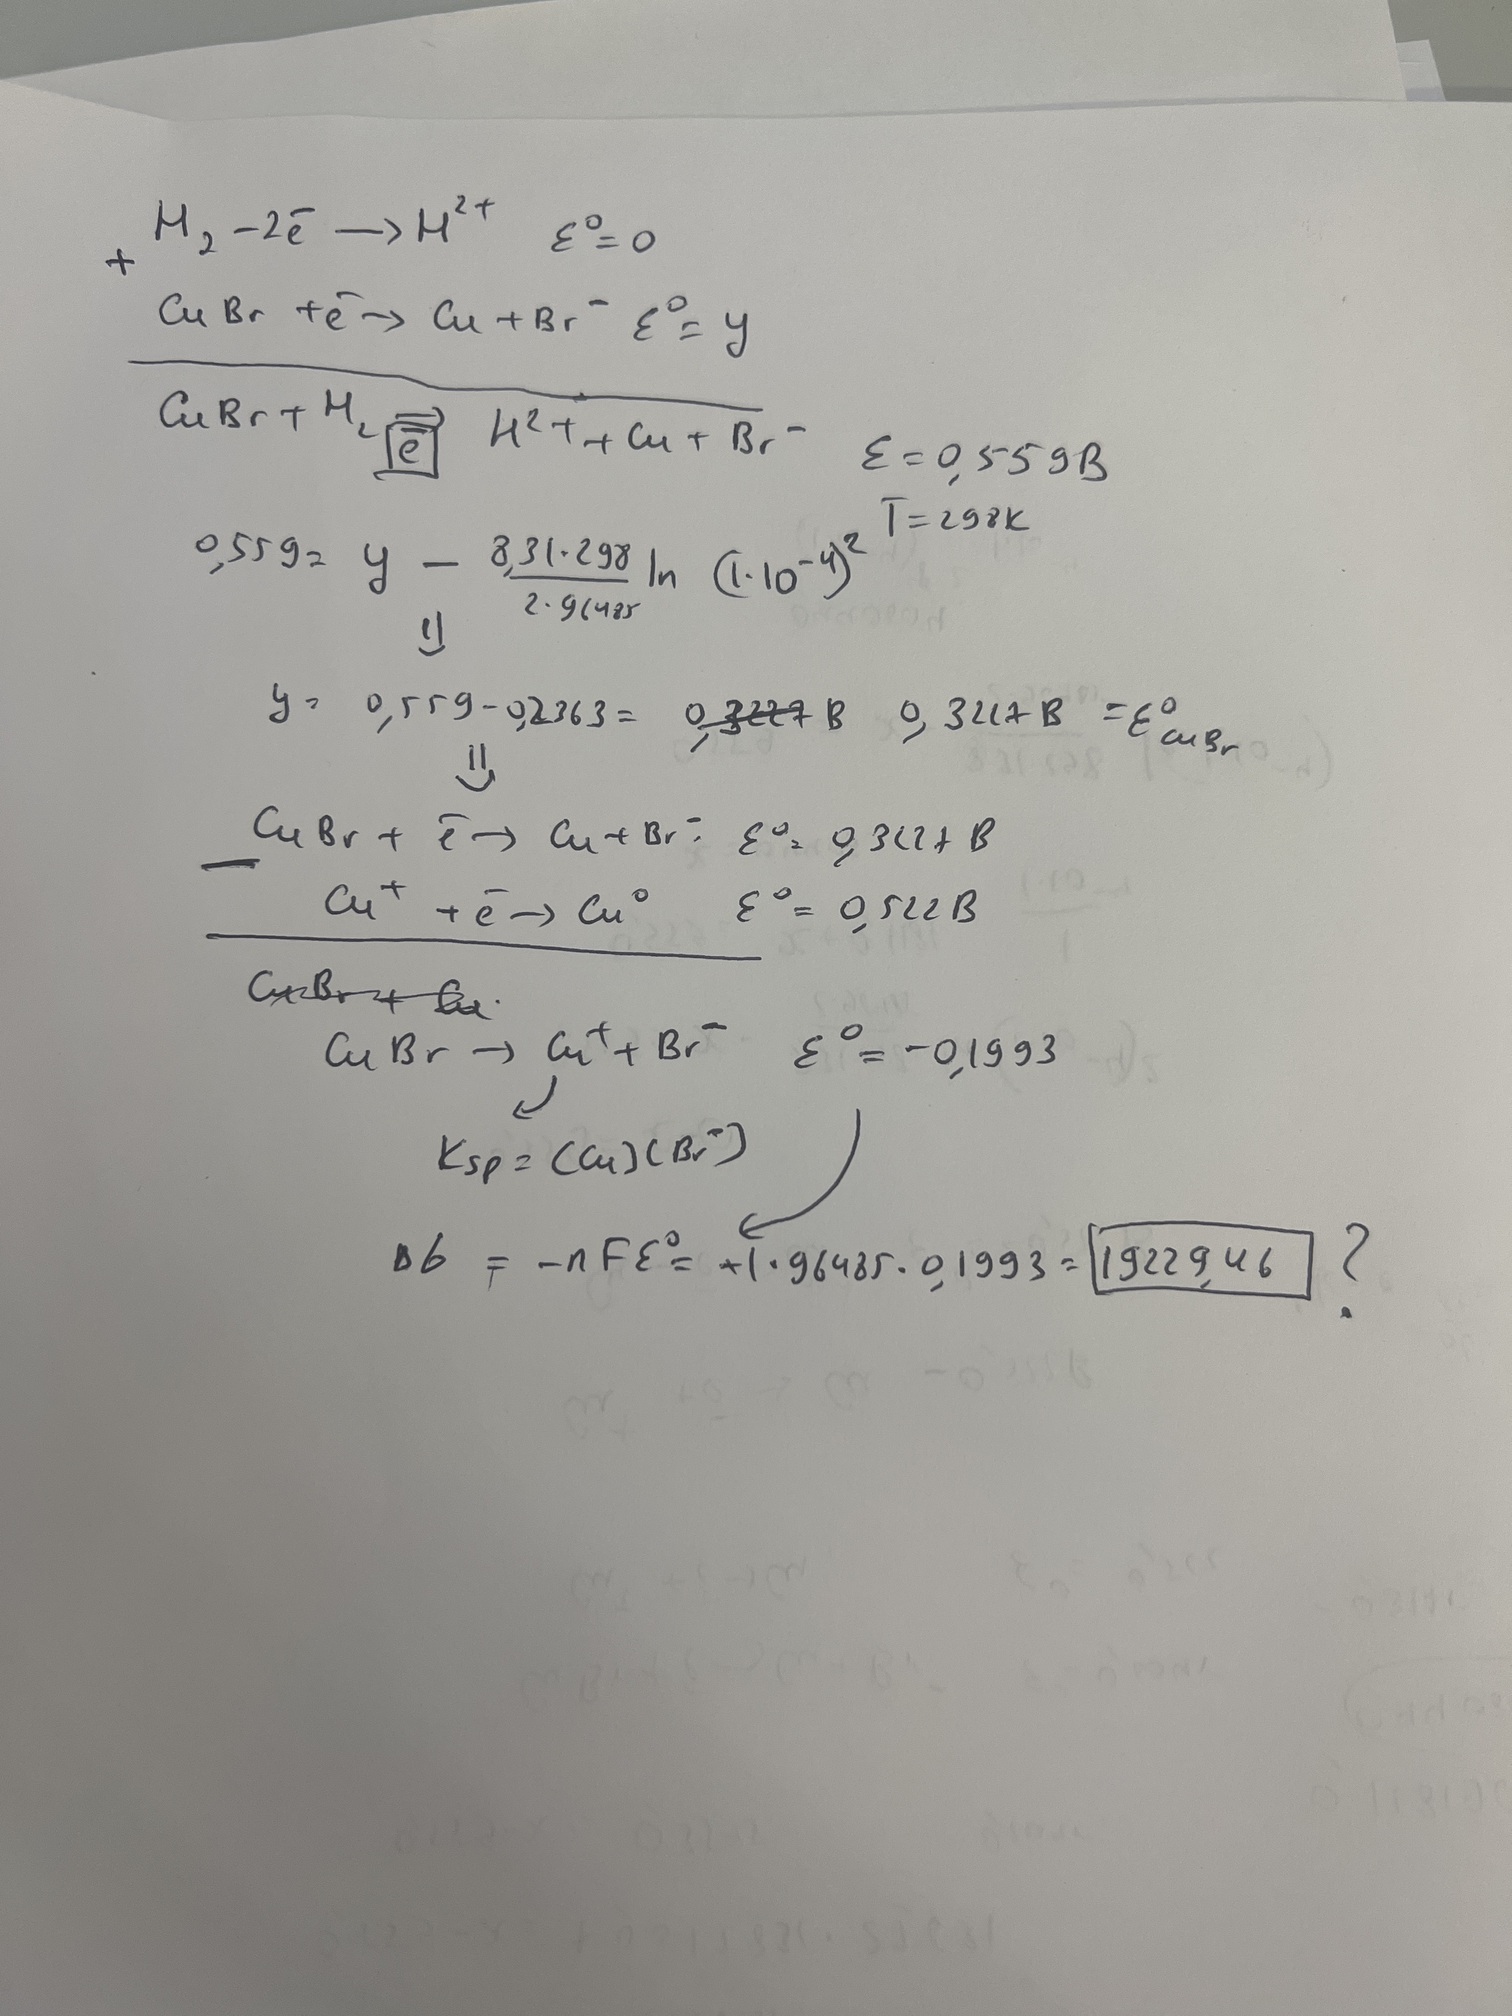 H₂ - 2ē → H²⁺ ε⁰ = 0
+
CuBr + ē → Cu + Br⁻ ε⁰ = y
CuBr + H₂ ⇄ ē H²⁺ + Cu + Br⁻ ε = 0,559В
T = 298K
0,559 = y - 8,31·298 / 2·96485 ln (1·10⁻⁴)²
⇓
y = 0,559 - 0,2363 = 0,3227 В 0,3227 В = ε⁰ CuBr
⇓
CuBr + ē → Cu + Br⁻ ε⁰ = 0,3227 В
−
Cu⁺ + ē → Cu⁰ ε⁰ = 0,522 В
CuBr + Cu
CuBr → Cu⁺ + Br⁻ ε⁰ = -0,1993
Ksp = (Cu)(Br⁻)
ΔG = -nFε⁰ = +1·96485·0,1993 = 19229,46 ?